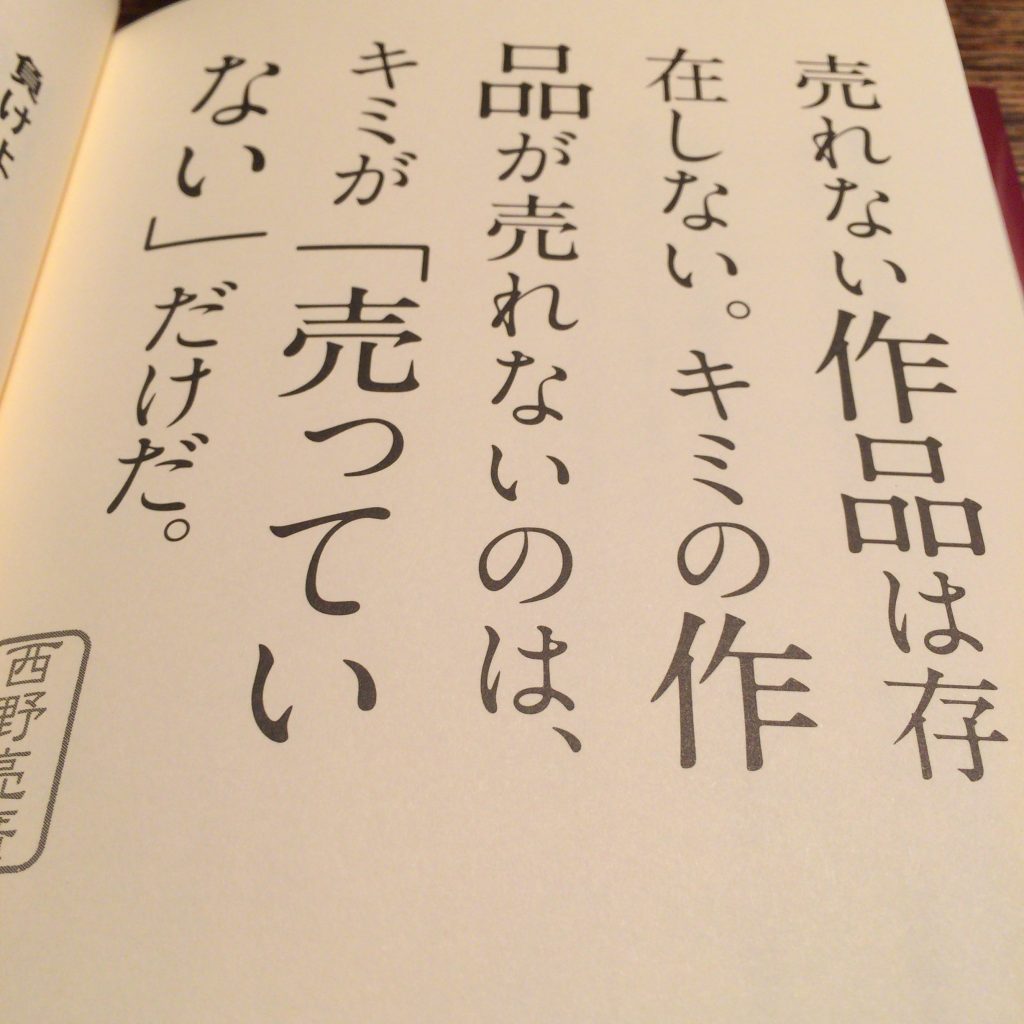 売れない作品は存
在しない。キミの作
品が売れないのは、
キミが「売ってい
ない」だけだ。
西野亮
負けよ